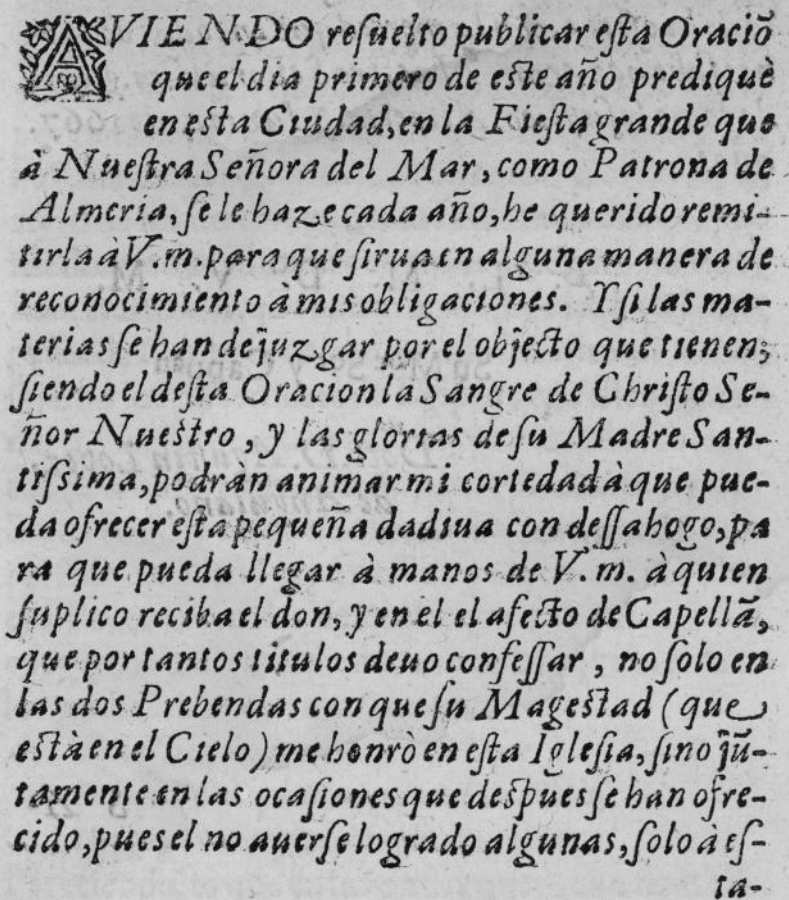 AVIENDO resuelto publicar esta Oraciõ
que el dia primero de este año prediquè
en esta Ciudad, en la Fiesta grande que
à Nuestra Señora del Mar, como Patrona de
Almeria, se le haze cada año, he querido remi-
tirla à V.m. para que sirua en alguna manera de
reconocimiento à mis obligaciones. Y si las ma-
terias se han de juzgar por el objecto que tienen;
siendo el desta Oracion la Sangre de Christo Se-
ñor Nuestro, y las glorias de su Madre San-
tissima, podràn animar mi cortedad à que pue-
da ofrecer èsta pequeña dadiua con dessahogo, pa
ra que pueda llegar à manos de V.m. à quien
suplico reciba el don, y en el el afecto de Capellã,
que por tantos titulos deuo confessar, no solo en
las dos Prebendas con que su Magestad (que
està en el Cielo) me honrò en esta Iglesia, sino jũ-
tamente en las ocasiones que despues se han ofre-
cido, pues el no auerse logrado algunas, solo à es-
ta-